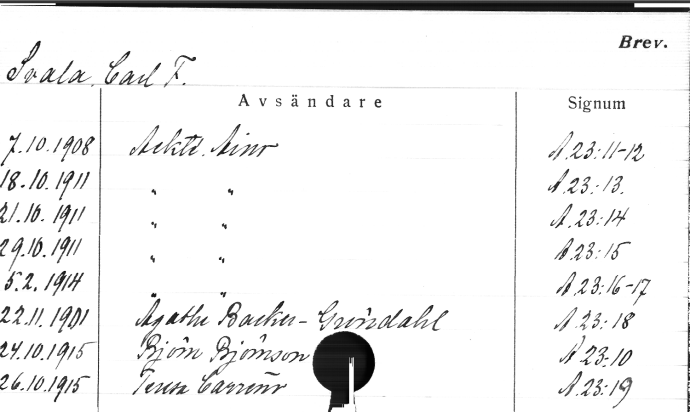 Brev.
Svala, Carl F.
Avsändare Signum
7.10.1908 Ackté, Aino A.23:11-12
18.10.1911 " " A.23:13.
21.10.1911 " " A.23:14
29.10.1911 " " A.23:15
5.2.1914 " " A.23:16-17
22.11.1901 Agathe Backer-Gröndahl A.23:18
24.10.1915 Björn Björnson A.23:10
26.10.1915 Teresa Carreño A.23:19